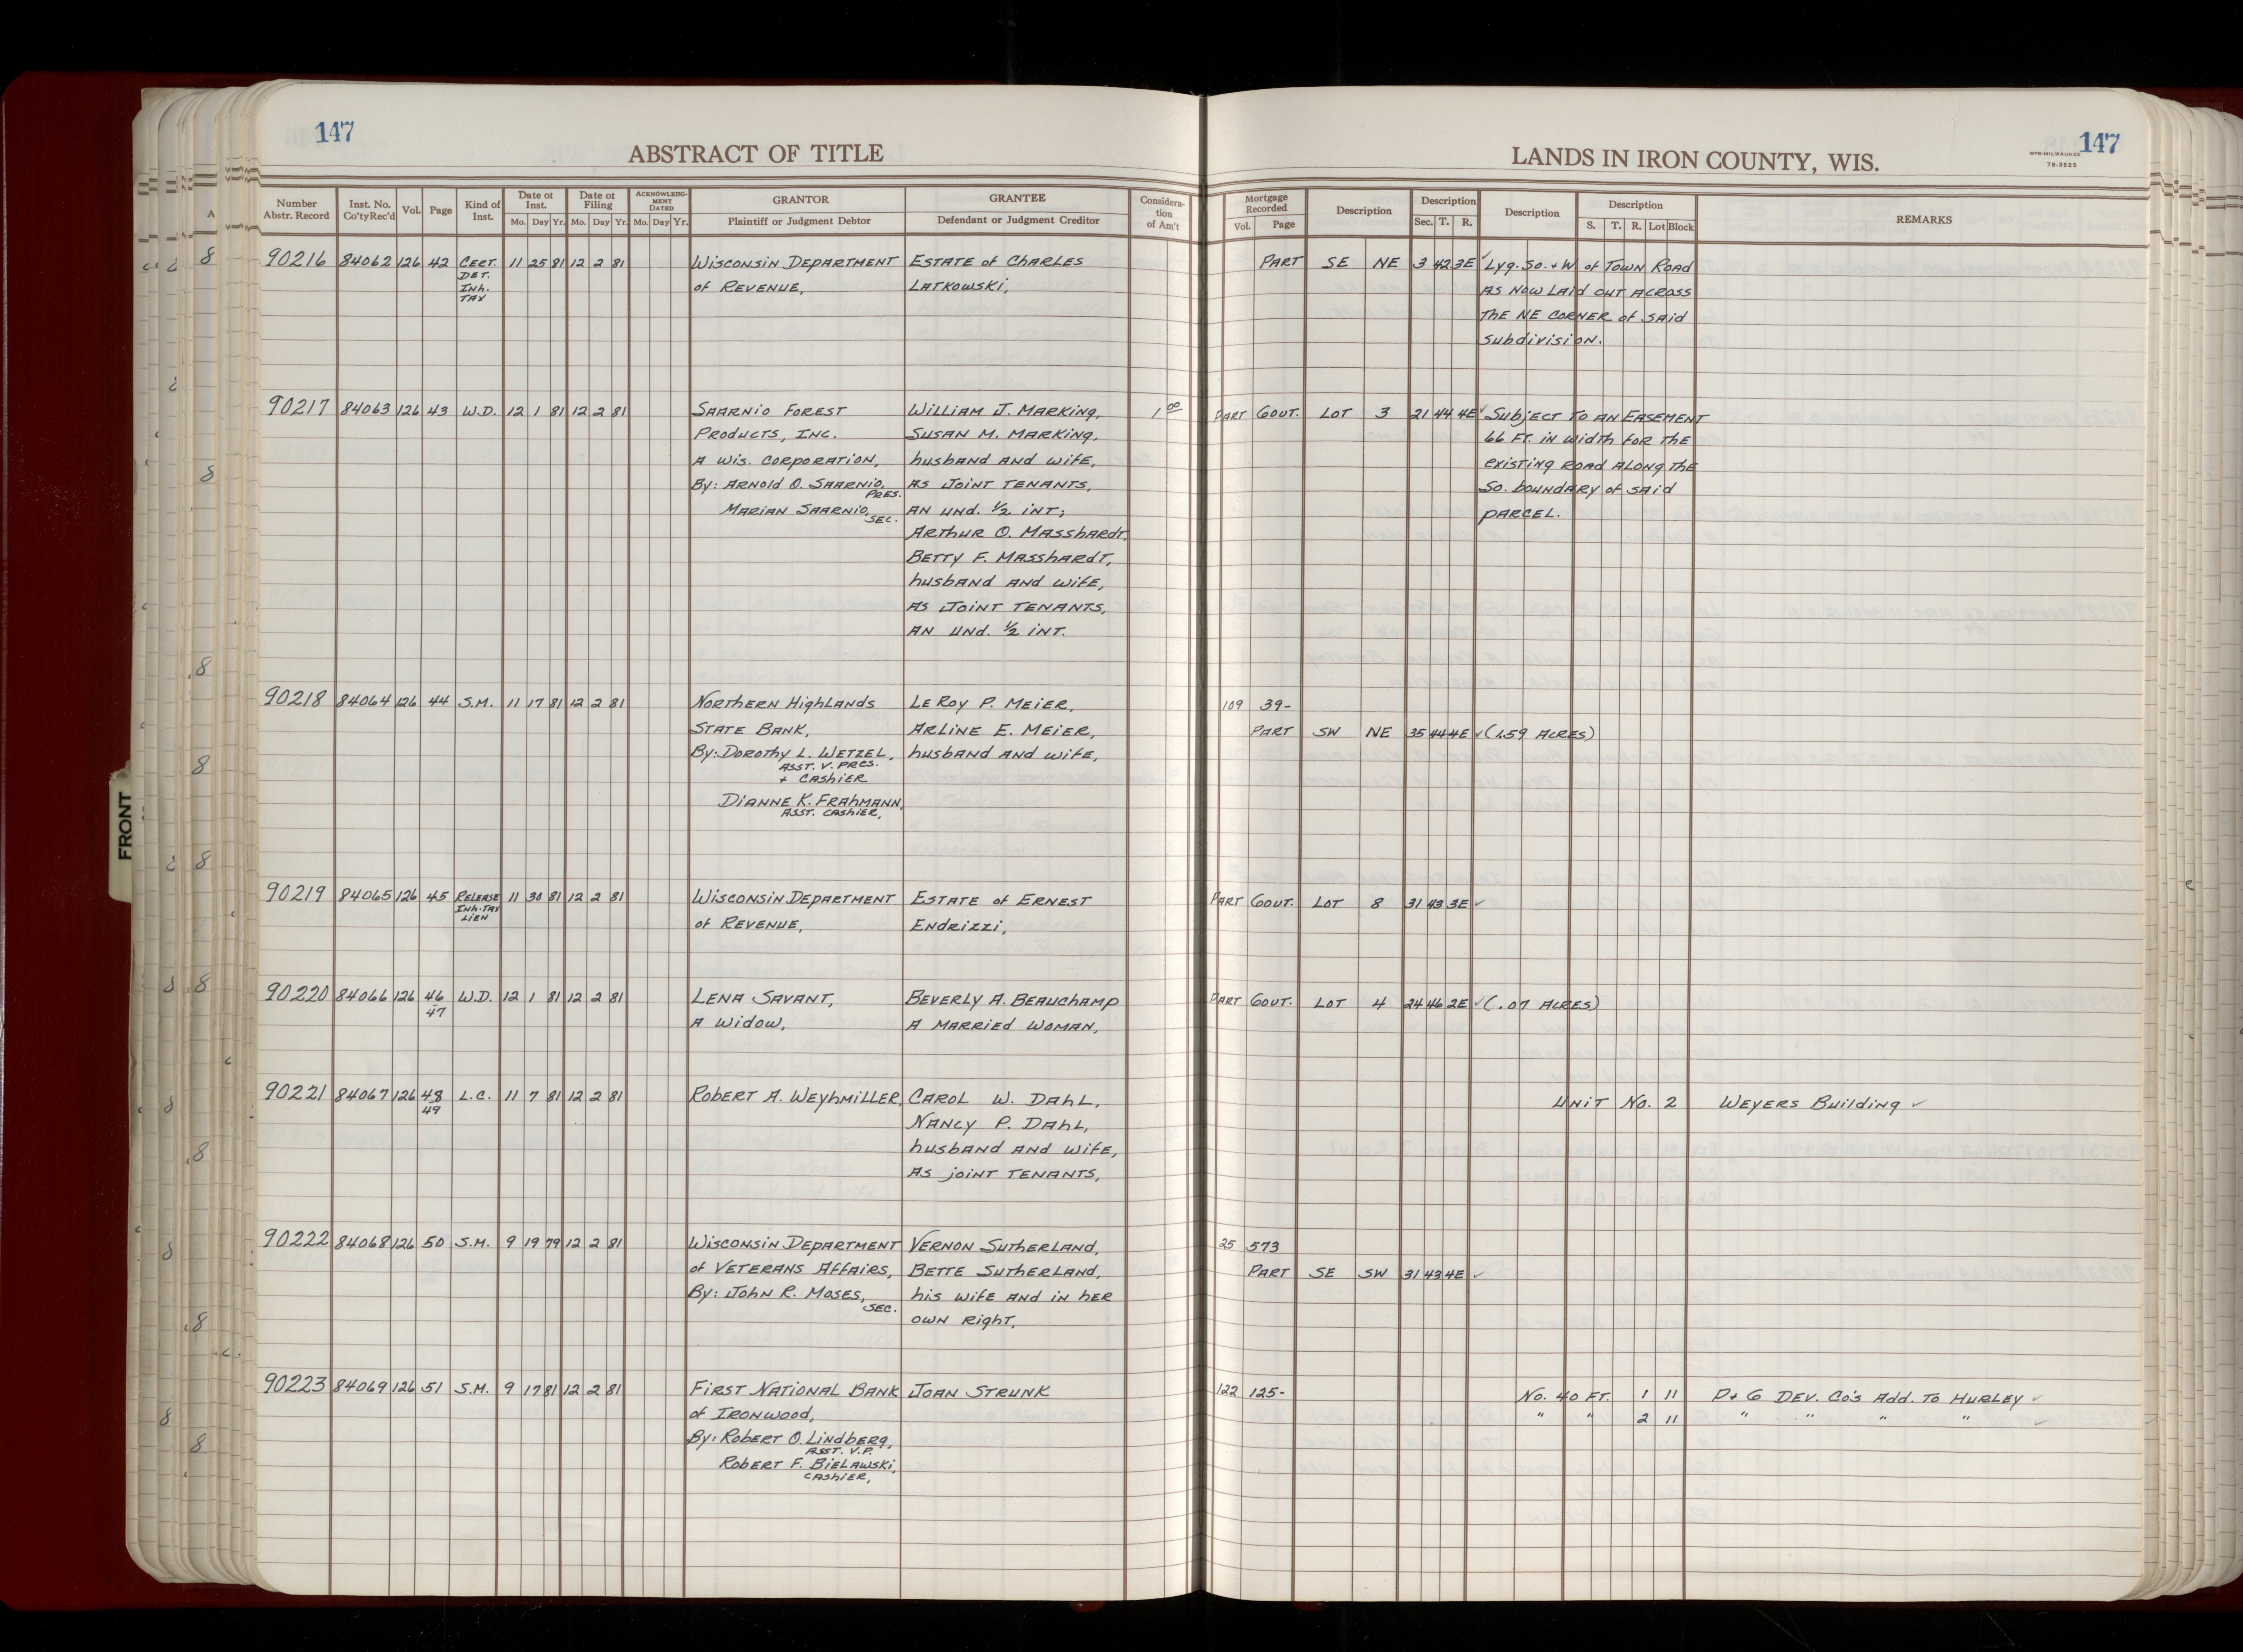 147
ABSTRACT OF TITLE
LANDS IN IRON COUNTY, WIS.
NPB-MILWAUKEE
78-3525
147
Number Abstr. Record | Inst. No. Co'ty Rec'd | Vol. | Page | Kind of Inst. | Date of Inst. Mo. Day Yr. | Date of Filing Mo. Day Yr. | ACKNOWLEDGMENT DATED Mo. Day Yr. | GRANTOR Plaintiff or Judgment Debtor | GRANTEE Defendant or Judgment Creditor | Consideration of Am't | Mortgage Recorded Vol. Page | Description | Description Sec. T. R. | Description | Description S. T. R. Lot Block | REMARKS
90216 84062 126 42 CERT. 11 25 81 12 2 81 WISCONSIN DEPARTMENT ESTATE of CHARLES PART SE NE 3 42 3E ✓ Lyg. So. + W of TOWN ROAD
DET. of REVENUE, LATKOWSKI, AS NOW LAID OUT ACROSS
INH. THE NE CORNER of SAID
TAX SUBDIVISION.
90217 84063 126 43 W.D. 12 1 81 12 2 81 SAARNIO FOREST WILLIAM J. MARKING, 1 00 PART GOVT. LOT 3 21 44 4E ✓ SUBJECT TO AN EASEMENT
PRODUCTS, INC. SUSAN M. MARKING, 66 FT. IN WIDTH FOR THE
A WIS. CORPORATION, HUSBAND AND WIFE, EXISTING ROAD ALONG THE
By: ARNOLD O. SAARNIO, PRES. AS JOINT TENANTS, SO. BOUNDARY of SAID
MARIAN SAARNIO, SEC. AN UND. 1/2 INT; PARCEL.
ARTHUR O. MASSHARDT,
BETTY F. MASSHARDT,
HUSBAND AND WIFE,
AS JOINT TENANTS,
AN UND. 1/2 INT.
90218 84064 126 44 S.M. 11 17 81 12 2 81 NORTHERN HIGHLANDS LEROY P. MEIER, 109 39-
STATE BANK, ARLINE E. MEIER, PART SW NE 35 44 4E ✓ (1.59 ACRES)
By: DOROTHY L. WETZEL, HUSBAND AND WIFE,
ASST. V. PRES.
+ CASHIER
DIANNE K. FRAHMANN,
ASST. CASHIER,
90219 84065 126 45 RELEASE 11 30 81 12 2 81 WISCONSIN DEPARTMENT ESTATE of ERNEST PART GOVT. LOT 8 31 43 3E ✓
INH. TAX of REVENUE, ENDRIZZI,
LIEN
90220 84066 126 46 W.D. 12 1 81 12 2 81 LENA SAVANT, BEVERLY A. BEAUCHAMP PART GOVT. LOT 4 24 46 2E ✓ (.07 ACRES)
47 A WIDOW, A MARRIED WOMAN,
90221 84067 126 48 L.C. 11 7 81 12 2 81 ROBERT A. WEYHMILLER, CAROL W. DAHL, UNIT NO. 2 WEYERS BUILDING ✓
49 NANCY P. DAHL,
HUSBAND AND WIFE,
AS JOINT TENANTS,
90222 84068 126 50 S.M. 9 19 79 12 2 81 WISCONSIN DEPARTMENT VERNON SUTHERLAND, 25 573
of VETERANS AFFAIRS, BETTE SUTHERLAND, PART SE SW 31 43 4E ✓
By: JOHN R. MOSES, SEC. HIS WIFE AND IN HER
OWN RIGHT,
90223 84069 126 51 S.M. 9 17 81 12 2 81 FIRST NATIONAL BANK JOAN STRUNK 122 125- NO. 40 FT. 1 11 P+G DEV. Co's ADD. TO HURLEY ✓
of IRONWOOD, " " 2 11 " " " " ✓
By: ROBERT O. LINDBERG,
ASST. V.P.
ROBERT F. BIELAWSKI,
CASHIER,
FRONT